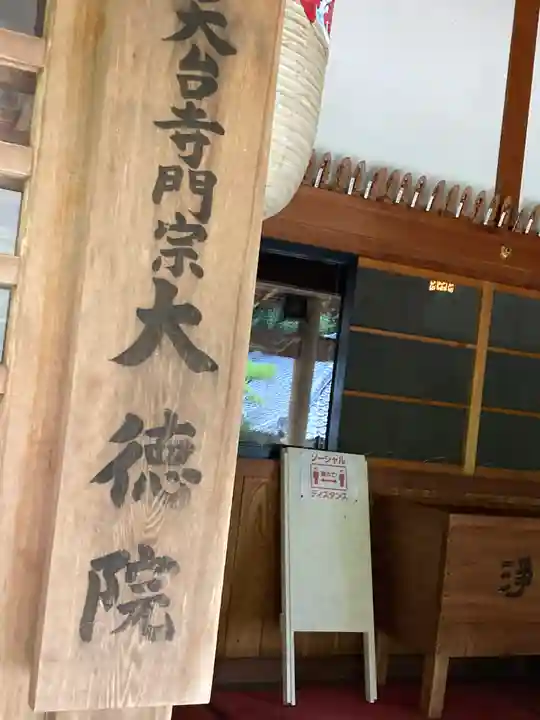 天台寺門宗大徳院
ソーシャル
ディスタンス
浄